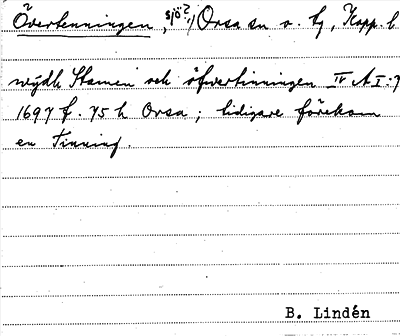 Övertenningen, sjö?, Orsa sn o. tg, Kopp. l
wijdh Stamen och öfwertinningen IV A I:7
1697 f. 75 h Orsa; tidigare förekom
en Tinning.
B. Lindén